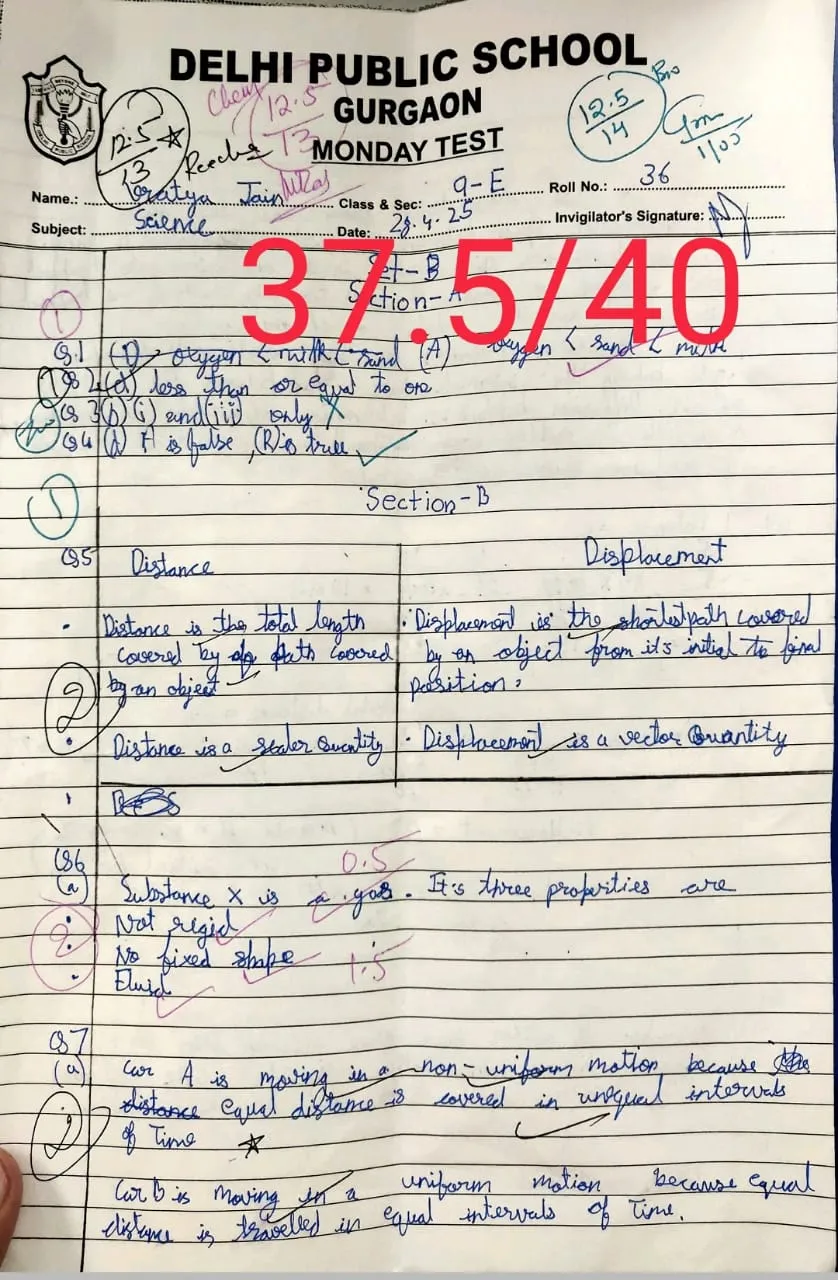 DELHI PUBLIC SCHOOL
GURGAON
MONDAY TEST
Chem 12.5/13
12.5/13
12.5/14 Bio
Name.: Jain Class & Sec: 9-E Roll No.: 36
Subject: Science Date: 28.4.25 Invigilator's Signature:
37.5/40
Set-B
Section-A
1
Q.1 oxygen < milk < sand (A) oxygen < sand < milk
1 Q2 (d) less than or equal to one
Q3 (b) (i) and (iii) only
Q4 (d) A is false, (R) is true
1
Section-B
Q5 Distance Displacement
• Distance is the total length covered by path covered by an object
• Displacement is the shortest path covered by an object from it's initial to final position.
2
• Distance is a scaler Quantity • Displacement is a vector Quantity
Q6 0.5
(a) Substance X is a gas. It's three properties are
• Not regid
2 • No fixed shape 1.5
• Fluid
Q7
(a) Car A is moving in a non-uniform motion because the
distance Equal distance is covered in unequal intervals
2 of Time
Car B is moving in a uniform motion because equal
distance is travelled in equal intervals of Time.